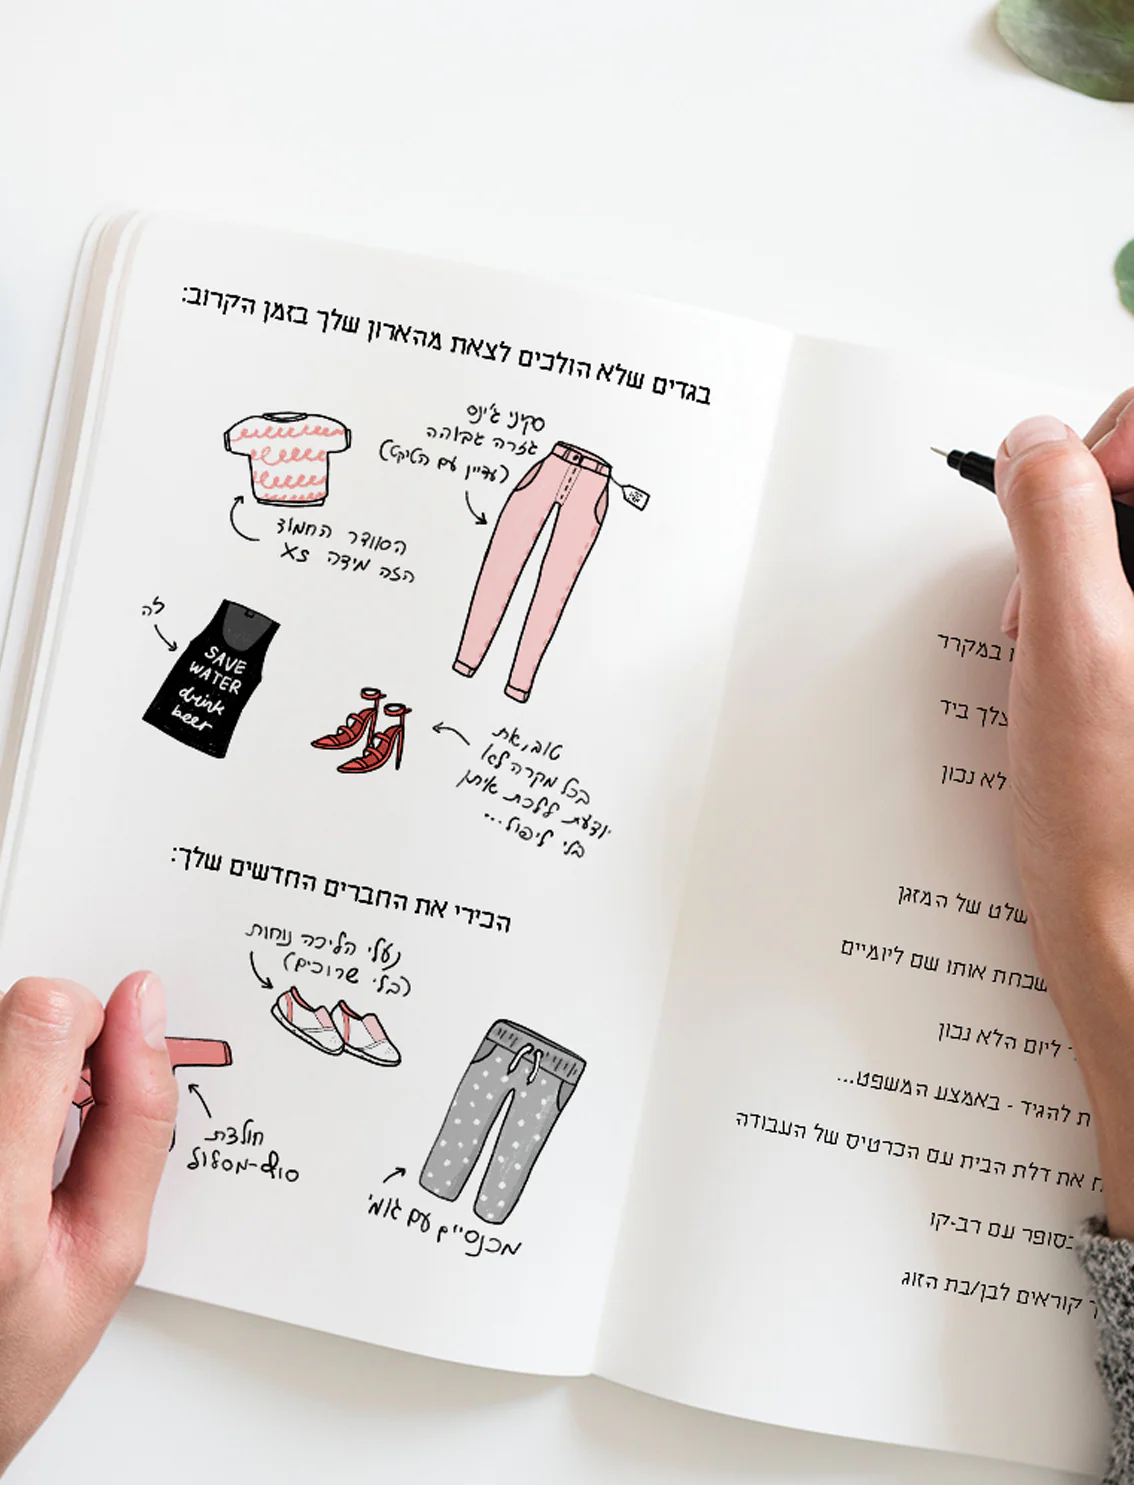 בגדים שלא הולכים לצאת מהארון שלך בזמן הקרוב:
סקיני ג'ינס
גזרה גבוהה
(עדיין עם הטיקט)
הסוודר החמוד
הזה מידה XS
לה
SAVE
WATER
drink
beer
טוב, את
בכל מקרה לא
יודעת ללכת איתן
בלי ליפול...
הכירי את החברים החדשים שלך:
נעלי הליכה נוחות
(בלי שרוכים)
חולצת
סוף-מסלול
מכנסיים עם גומי
במקרר
ביד
לא נכון
שלט של המזגן
שכחת אותו שם ליומיים
ליום הלא נכון
להגיד - באמצע המשפט...
את דלת הבית עם הכרטיס של העבודה
בסופר עם רב-קו
קוראים לבן/בת הזוג